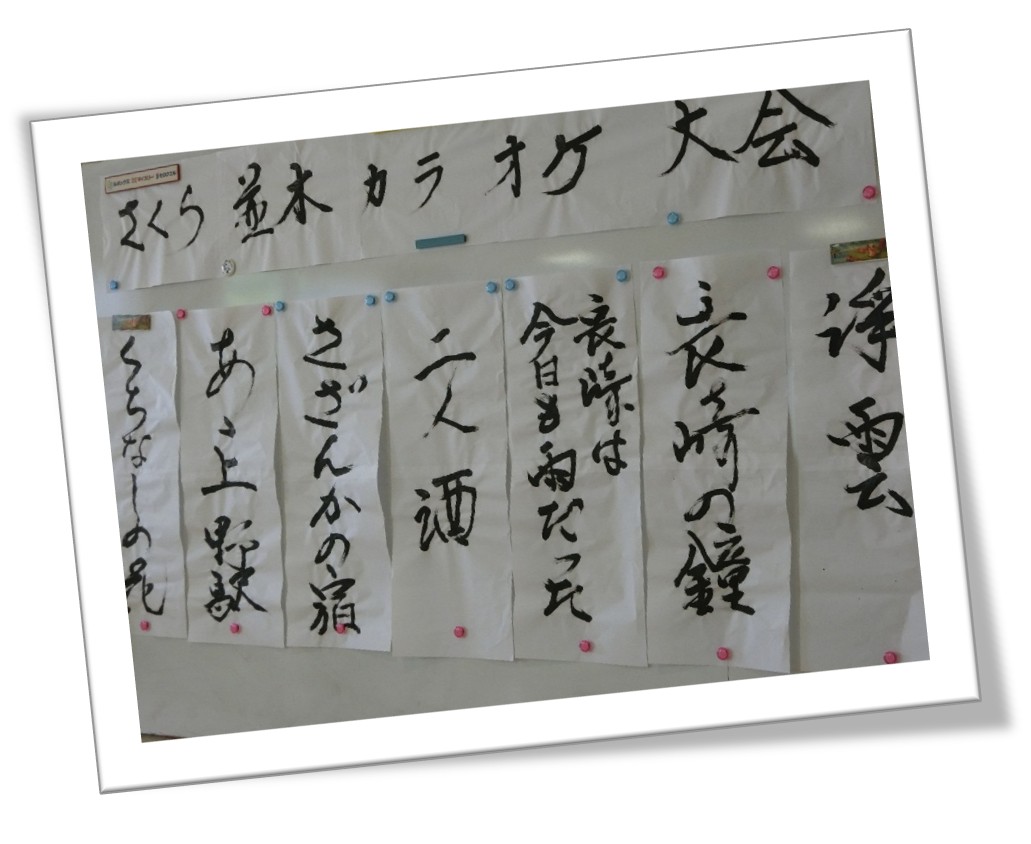 さくら並木カラオケ大会
浮雲
長崎の鐘
長崎は
今日も雨だった
二人酒
さざんかの宿
あゝ上野駅
くちなしの花